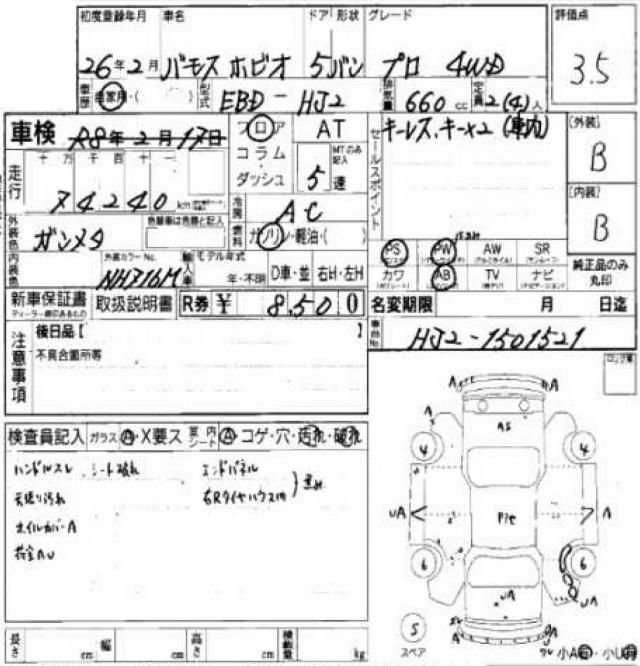 初度登録年月 車名 ドア 形状 グレード 評価点
26年2月 バモス ホビオ 5 バン プロ 4WD 3.5
車歴 自家用・( ) 型式 EBD-HJ2 排気量 660 cc 定員 2(4)人
車検 R8年2月17日 フロア コラム・ダッシュ AT MTのみ記入 5速
セールスポイント キーレス、キー×2(車内)
[外装] B
[内装] B
走行 十万千百十一 74240 km
冷房 AC
燃料 ガソリン・軽油・( )
外装色 ガンメタ 色替車は色番と記入
内装色 外装カラーNo. NH716M 輸入車 モデル年式 年・不明 D車・並 右H・左H
PS PW AW SR
カワ AB TV ナビ
純正品のみ丸印
新車保証書 ディーラー印のあるもの 取扱説明書 R券 ¥ 8,500
名変期限 月 日迄
車台No. HJ2-1501521
注意事項 後日品【 】
不具合箇所等
検査員記入 ガラス A・X要ス 室内シート A・コゲ・穴・汚れ・破れ
ハンドルスレ シート破れ エンドパネル
天張り汚れ 右Rタイヤハウス内
ホイルカバーA
荷室AU
A A
A A
4 AS 4
UA Pte A
6 6
UA UA
S スペア
A A 小A 小U
長さ cm 幅 cm 高さ cm 積載量 kg